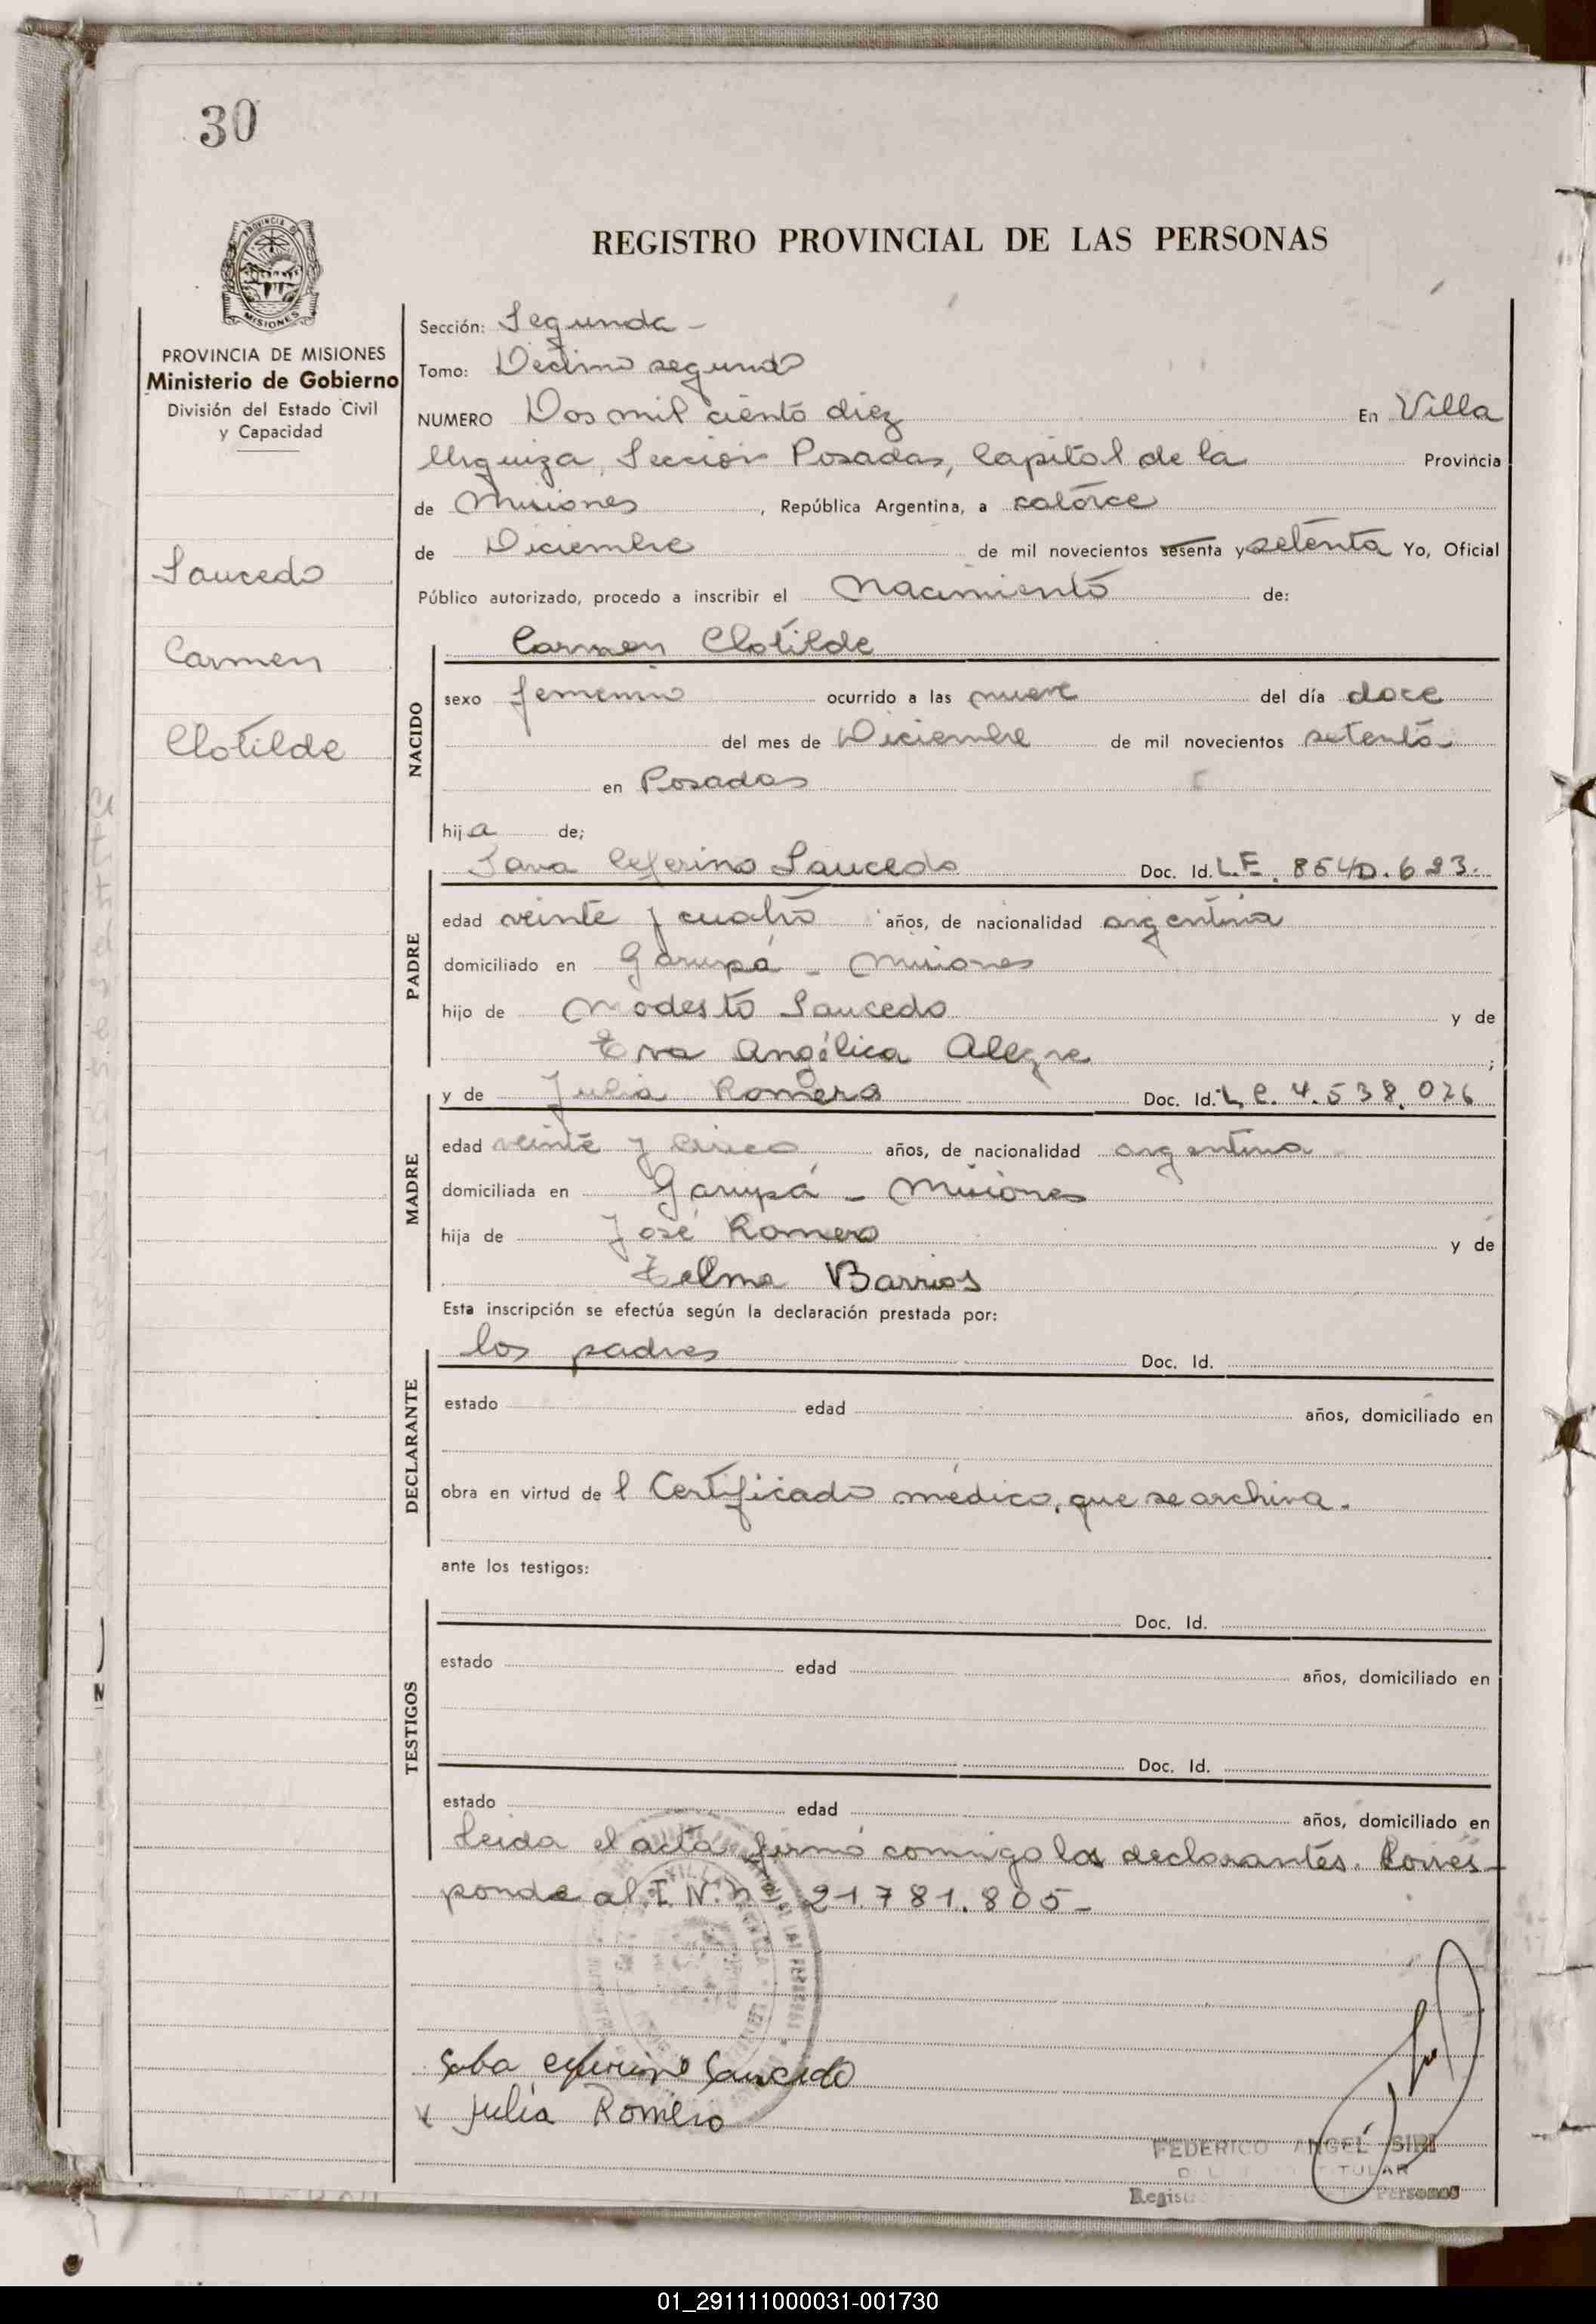 30
PROVINCIA DE MISIONES
REGISTRO PROVINCIAL DE LAS PERSONAS
PROVINCIA DE MISIONES
Ministerio de Gobierno
División del Estado Civil
y Capacidad
Saucedo
Carmen
Clotilde
Sección: Segunda -
Tomo: Décimo segundo
NUMERO Dos mil ciento diez En Villa
Urquiza, Sección Posadas, Capital de la Provincia
de Misiones, República Argentina, a catorce
de Diciembre de mil novecientos sesenta y setenta Yo, Oficial
Público autorizado, procedo a inscribir el Nacimiento de:
NACIDO
Carmen Clotilde
sexo femenino ocurrido a las nueve del día doce
del mes de Diciembre de mil novecientos setenta
en Posadas
hija de;
PADRE
Ceferino Saucedo Doc. Id. L.E.
edad veinte y cuatro años, de nacionalidad argentina
domiciliado en Garupá - Misiones
hijo de Modesto Saucedo y de
Eva Angélica Alegre;
MADRE
y de Julia Romero Doc. Id. L.C. 4.538.026
edad veinte y cinco años, de nacionalidad argentina
domiciliada en Garupá - Misiones
hija de José Romero y de
Telma Barrios
Esta inscripción se efectúa según la declaración prestada por:
DECLARANTE
los padres Doc. Id.
estado edad años, domiciliado en
obra en virtud del Certificado médico, que se archiva.
ante los testigos:
TESTIGOS
Doc. Id.
estado edad años, domiciliado en
Doc. Id.
estado edad años, domiciliado en
Leida el acta firmó conmigo los declarantes. Corres-
ponde al I.N. nº 21.781.805-
Saba Saucedo
x Julia Romero
FEDERICO ANGEL SIRI
TITULAR
Personas
01_291111000031-001730